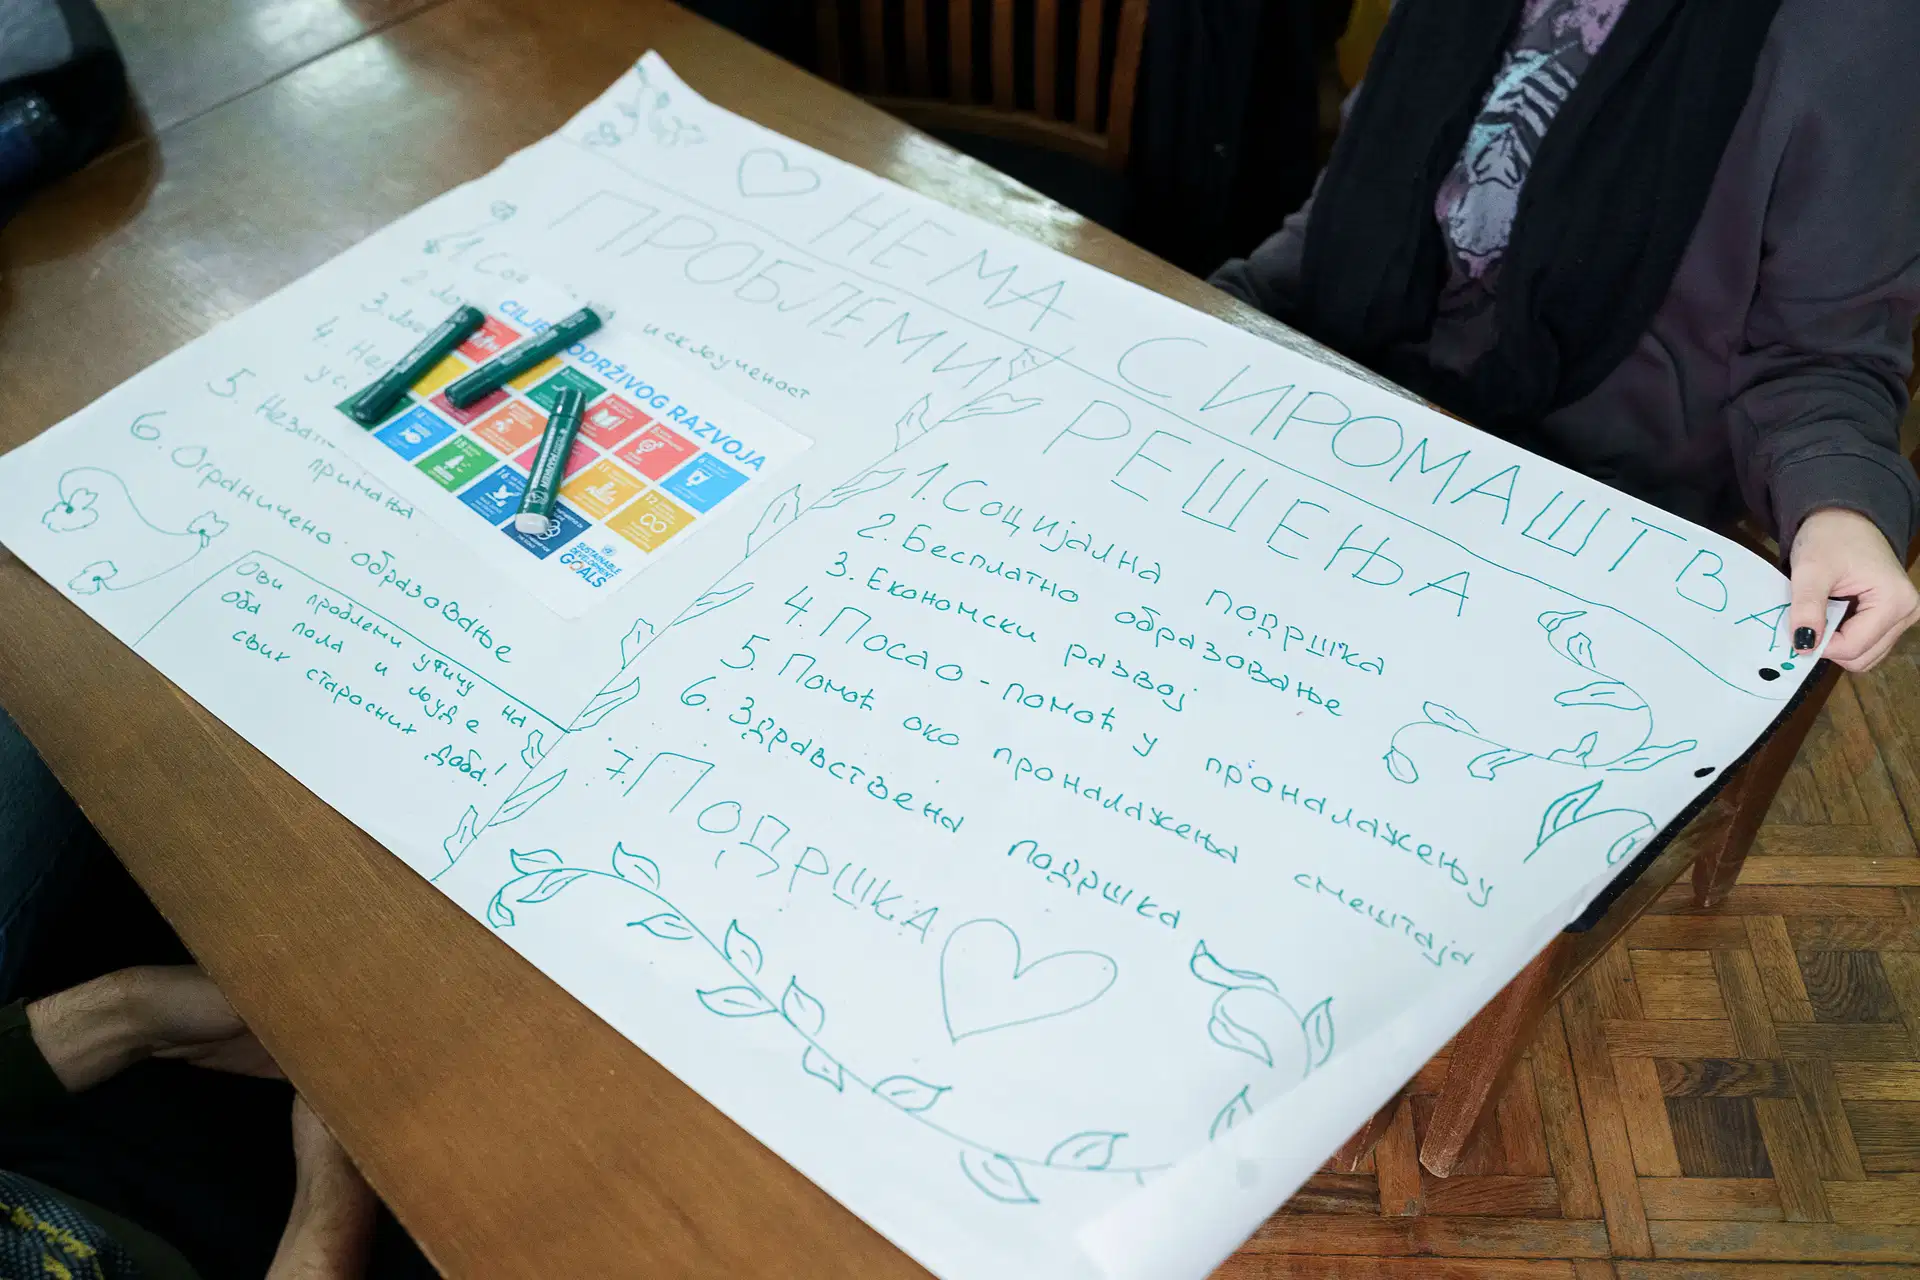 НЕМА СИРОМАШТВА!
ПРОБЛЕМИ
1. Соц
и исклученост
2.
3.
4.
5. Незап
примања
6. Ограничено образовање
Ови проблеми утичу на
оба пола и људе
свих старосних доба!
CILJEVI ODRŽIVOG RAZVOJA
SUSTAINABLE
DEVELOPMENT
GOALS
РЕШЕЊА
1. Социјална подршка
2. Бесплатно образовање
3. Економски развој
4. Посао - помоћ у проналажењу
5. Помоћ око проналажења смештаја
6. Здравствена подршка
7. ПОДРШКА